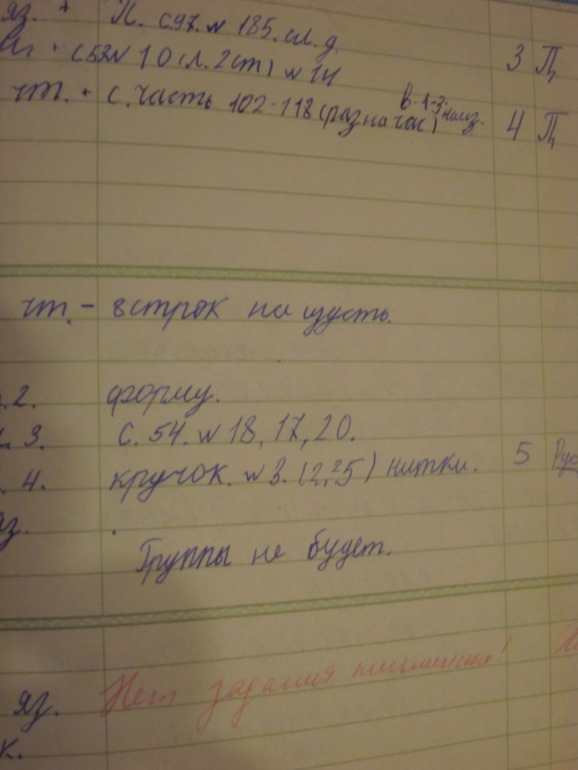 яз. + П. с97. N 185. сл. д.
+ с 53 N 10 (л. 2 ст) N 14
3 П
чт. + с. часть 102-118 (разначок) в-1-3.
4 П
чт. - 8 строк на изусть.
2. форму.
3. с. 54. N 18, 17, 20.
4. кручок. N 3. (2,25) нитки.
5 Рус
яз.
Группы не будет.
яз. Нет задания письменно!
к.